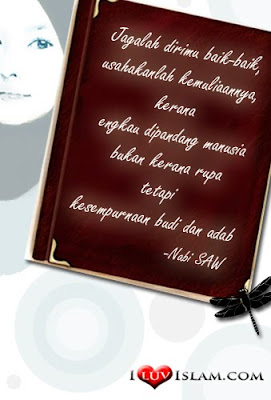 Jagalah dirimu baik-baik,
usahakanlah kemuliaannya,
kerana
engkau dipandang manusia
bukan kerana rupa
tetapi
kesempurnaan budi dan adab
-Nabi SAW
I LUV ISLAM.COM